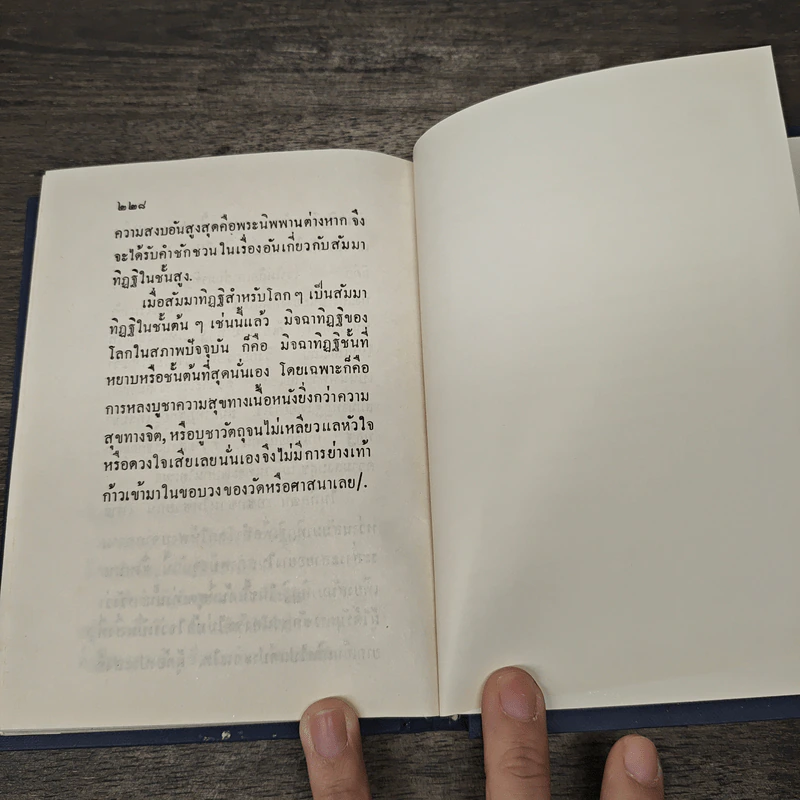 ๒๒๘
ความสงบอันสูงสุดคือพระนิพพานต่างหาก จึง
จะได้รับคำชักชวนในเรื่องอันเกี่ยวกับสัมมา
ทิฏฐิในชั้นสูง.
เมื่อสัมมาทิฏฐิสำหรับโลก ๆ เป็นสัมมา
ทิฏฐิในชั้นต้น ๆ เช่นนี้แล้ว มิจฉาทิฏฐิของ
โลกในสภาพปัจจุบัน ก็คือ มิจฉาทิฏฐิชั้นที่
หยาบหรือชั้นต้นที่สุดนั่นเอง โดยเฉพาะก็คือ
การหลงบูชาความสุขทางเนื้อหนังยิ่งกว่าความ
สุขทางจิต, หรือบูชาวัตถุจนไม่เหลียวแลหัวใจ
หรือดวงใจเสียเลยนั่นเองจึงไม่มีการย่างเท้า
ก้าวเข้ามาในขอบวงของวัดหรือศาสนาเลย/.